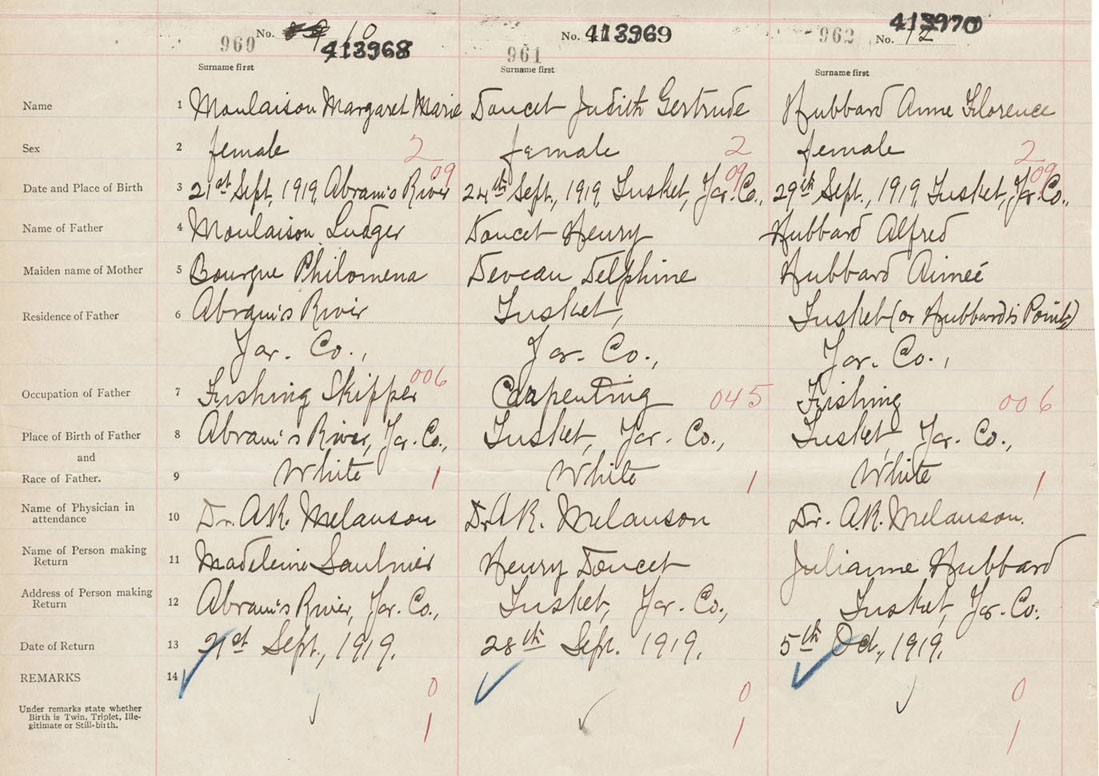 960 No. 10 413968
961 No. 413969
962 No. 12 413970
Surname first Surname first Surname first
Name 1 Moulaison Margaret Marie Doucet Judith Gertrude Hubbard Anne Florence
Sex 2 female 2 female 2 female 2
Date and Place of Birth 3 21st Sept, 1919, Abram's River 09 24th Sept., 1919, Tusket, Yar. Co., 09 29th Sept., 1919, Tusket, Yar. Co., 09
Name of Father 4 Moulaison Ludger Doucet Henry Hubbard Alfred
Maiden name of Mother 5 Bourque Philomena Deveau Delphine Hubbard Aimeé
Residence of Father 6 Abram's River Tusket, Tusket (or Hubbard's Point)
Yar. Co., Yar. Co., Yar. Co.,
Occupation of Father 7 Fishing Skipper 006 Carpenting 045 Fishing 006
Place of Birth of Father 8 Abram's River, Yar. Co., Tusket, Yar. Co., Tusket Yar. Co.,
and
Race of Father. 9 White 1 White 1 White 1
Name of Physician in
attendance 10 Dr. A.R. Melanson Dr. A.R. Melanson Dr. A.R. Melanson.
Name of Person making
Return 11 Madeleine Saulnier Henry Doucet Julianne Hubbard
Address of Person making
Return 12 Abram's River, Yar. Co., Tusket, Yar. Co., Tusket, Yar. Co.
Date of Return 13 21st Sept., 1919. 28th Sept. 1919. 5th Oct., 1919.
REMARKS 14 0 0 0
Under remarks state whether
Birth is Twin, Triplet, Ille-
gitimate or Still-birth. 1 1 1